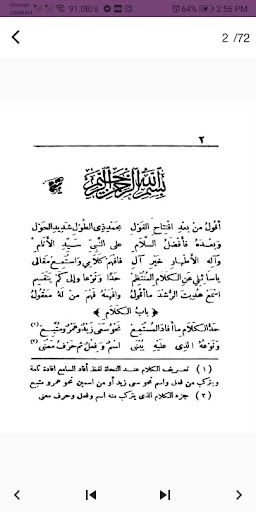 Umniah
UMNIAH
91.0B/s
64%
2:56 PM
2 /72
٢
بسم الله الرحمن الرحيم
أقول من بعد افتتاح القول بحمد ذي الطول شديد الحول
وبعده فأفضل السلام على النبي سيد الأنام
وآله الأطهار خير آل فافهم كلامي واستمع مقالي
يا سائلي عن الكلام المنتظم حدا ونوعا وإلى كم ينقسم
اسمع هديت الرشد ما أقول وافهمه فهم من له معقول
﴿ باب الكلام ﴾
حد الكلام ما أفاد المستمع نحو سعى زيد وعمرو متبع (١)
ونوعه الذي عليه يبنى اسم وفعل ثم حرف معنى (٢)
(١) تعريف الكلام عند النحاة لفظ أفاد السامع افادة تامة
ويتركب من فعل واسم نحو سعى زيد أو من اسمين نحو عمرو متبع
(٢) جزء الكلام الذى يتركب منه اسم وفعل وحرف معنى